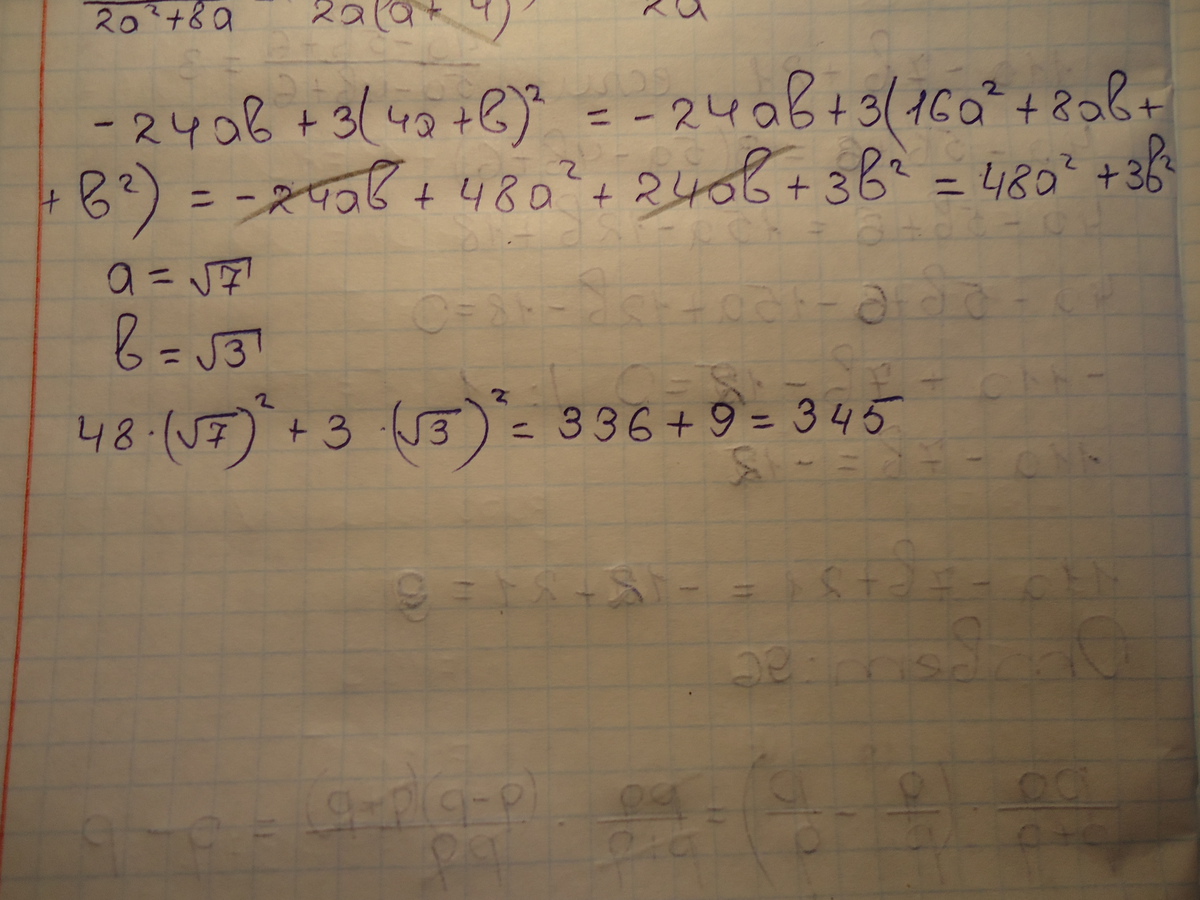 2a²+8a 2a(a+4) 2a
-24ab + 3(4a+b)² = -24ab+3(16a²+8ab+
+b²) = -24ab + 48a² + 24ab + 3b² = 48a² +3b²
a = √7
b = √3
48·(√7)² + 3·(√3)² = 336 + 9 = 345